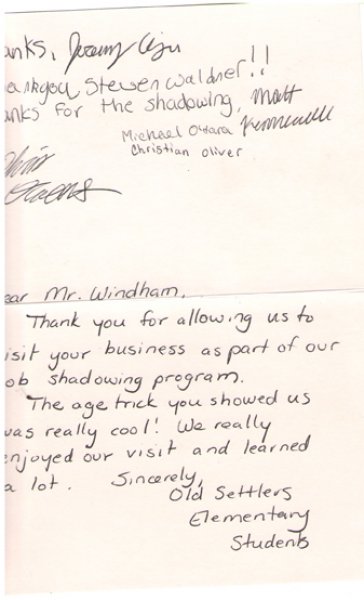 anks, Jeremy
ankyou Steven Waldner!!
anks for the shadowing, Matt
Michael O'Hara
Christian Oliver
Owens
ear Mr. Windham,
Thank you for allowing us to
isit your business as part of our
ob shadowing program.
The age trick you showed us
was really cool! We really
enjoyed our visit and learned
a lot. Sincerely,
Old Settlers
Elementary
Students